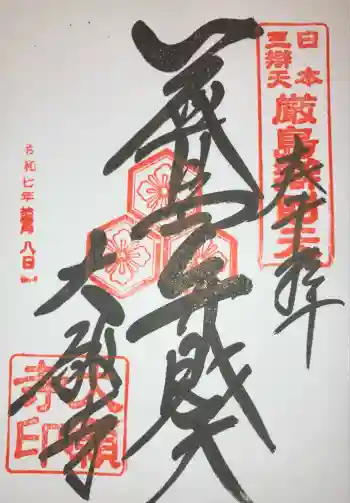 日本
三辯天
厳島辯財天
奉拝
厳島弁財天
大願寺
令和七年
八日
大願
寺印